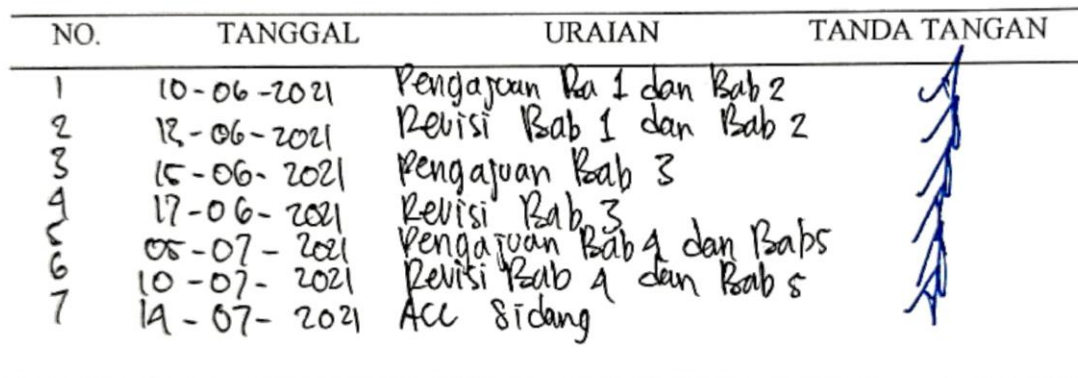 NO. TANGGAL URAIAN TANDA TANGAN
1 10-06-2021 Pengajuan Ba 1 dan Bab 2
2 12-06-2021 Revisi Bab 1 dan Bab 2
3 15-06-2021 Pengajuan Bab 3
4 17-06-2021 Revisi Bab 3
5 05-07-2021 Pengajuan Bab 4 dan Bab5
6 10-07-2021 Revisi Bab 4 dan Bab 5
7 14-07-2021 ACC Sidang